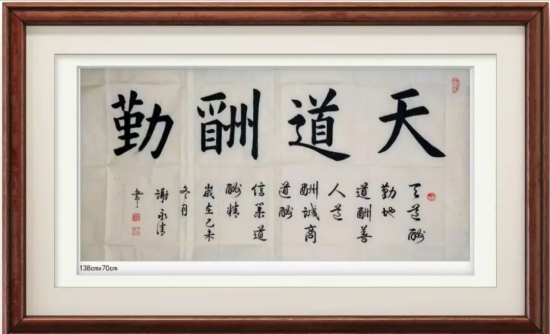 天道酬勤
天道酬
勤地
道酬善
人道
酬诚商
道酬
信業道
酬精
歲在己未
冬月
谢永清
書
138cmx70cm